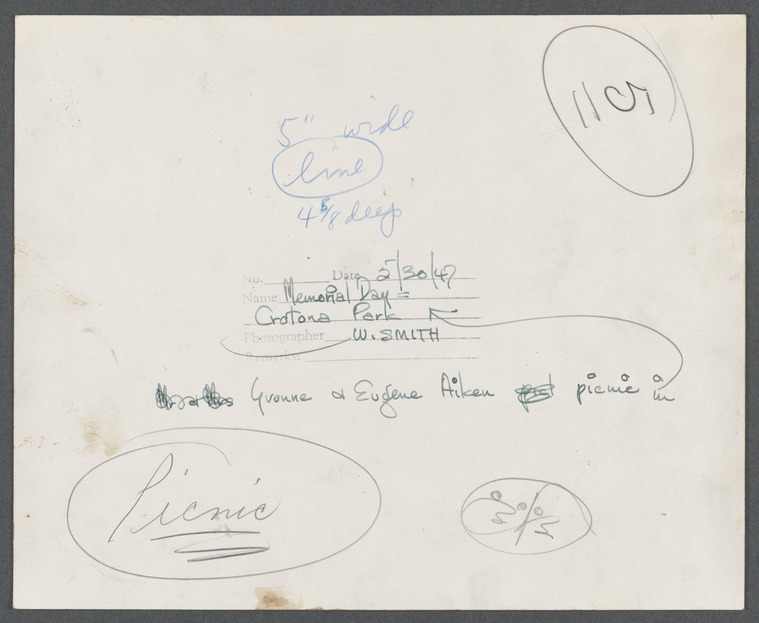 5" wide
line
4 5/8 deep
No. Date 5/30/47
Name Memorial Day =
Crotona Park
Photographer W. SMITH
Remarks
Yvonne & Eugene Aiken picnic in
Picnic